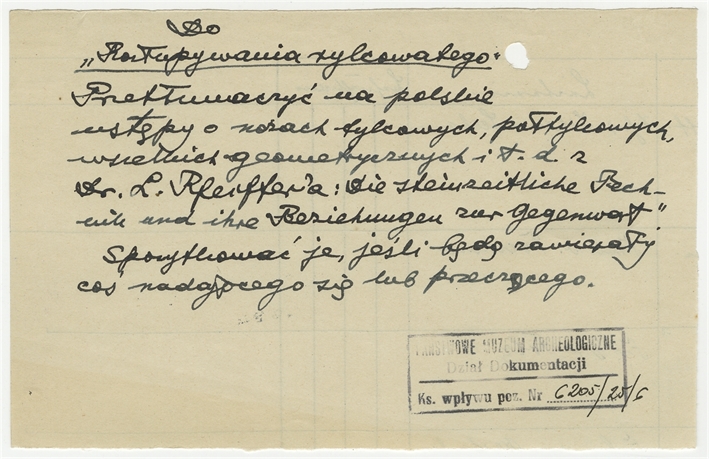 Do
„Rozłupywania rylcowatego".
Przetłumaczyć na polskie
ustępy o nożach tylcowych, półtylcowych,
wszelkich geometrycznych i t. d. z
Dr. L. Pfeiffer'a: Die steinzeitliche Tech-
nik und ihre Beziehungen zur Gegenwart"
Spożytkować je, jeśli będą zawierały
coś nadającego się lub przeczącego.
PAŃSTWOWE MUZEUM ARCHEOLOGICZNE
Dział Dokumentacji
Ks. wpływu poz. Nr 6205/25/6